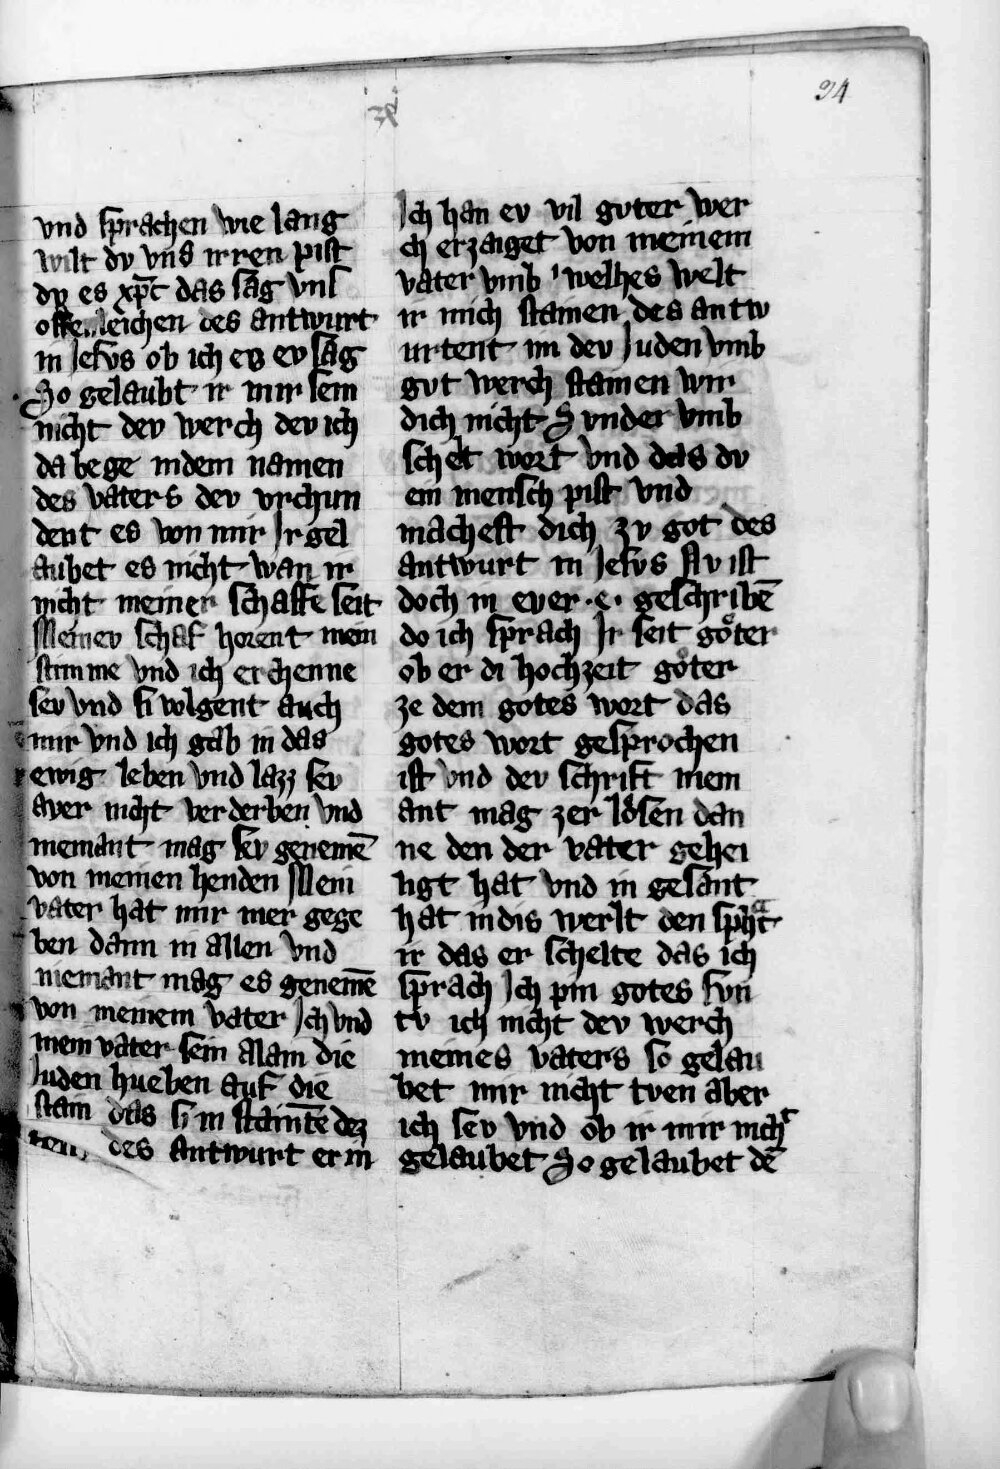 94
vnd sprachen wie lang
wilt dv vns irren pist
dv es xp̄c das sag vns
offenleichen des antwurt
in Jesvs ob ich es ev sag
So gelaubt ir mir sein
nicht dev werch dev ich
da bege in dem namen
des vaters dev vrchun
dent es von mir Ir gel
aubet es nicht wan ir
nicht meiner schaffe seit
Meinev schaf horent mein
stimme vnd ich erchenne
sev vnd si volgent auch
mir vnd ich gab in das
ewig leben vnd lazz sev
aver nicht verderben vnd
niemant mag sev genemē
von meinen henden Mein
vater hat mir mer gege
ben dann in allen vnd
niemant mag es genemē
von meinem vater Ich vnd
mein vater sein alain die
Juden hueben auf die
stain das si in staintē dez
des antwurt er in
Ich han ev vil gvter wer
ch erzaiget von meinem
vater vmb welhes welt
ir mich stainen des antw
urtent im dev Juden vmb
gvt werch stainen wir
dich nicht Svnder vmb
schelt wort vnd das dv
ein mensch pist vnd
machest dich zv got des
antwurt in Jesvs Nv ist
doch in ever .e. geschribē
do ich sprach Ir seit göter
ob er di hochzeit göter
ze dem gotes wort das
gotes wort gesprochen
ist vnd dev schrift niem
ant mag zerlösen dan
ne den der vater gehei
ligt hat vnd in gesant
hat in dis werlt den spͣht
ir das er schelte das ich
sprach Ich pin gotes svn
tv ich nicht dev werch
meines vaters so gelau
bet mir nicht tven aber
ich sev vnd ob ir mir nicht
gelaubet So gelaubet dē